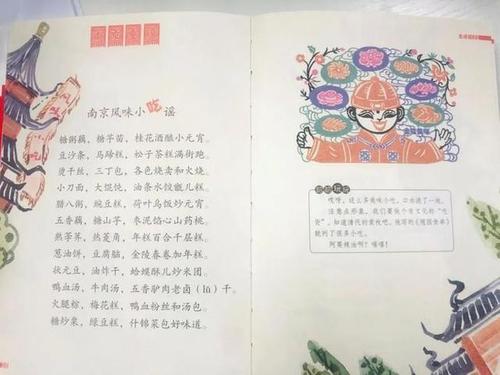 南京风味小吃谣
糖粥藕，糖芋苗，桂花酒酿小元宵。
豆沙条，马蹄糕，松子茶糕满街跑。
烫干丝，三丁包，各色烧卖和火烧。
小刀面，大馄饨，油条水饺甑儿糕。
腊八粥，豌豆糕，荷叶乌饭炒元宵。
五香藕，糖山芋，枣泥馅心山药桃。
熟荸荠，热菱角，年糕百合千层糕。
葱油饼，豆腐脑，金陵春卷加年糕。
状元豆，油炸干，蛤蟆酥儿炒米团。
鸭血汤，牛肉汤，五香驴肉老卤（lǔ）干。
火腿粽，梅花糕，鸭血粉丝和汤包。
糖炒栗，绿豆糕，什锦菜包好味道。
哎呀，这么多美味小吃，口水流了一地。
注意点形象，我们要做个有文化的“吃
货”，知道清代的袁枚吧，他写的《随园食单》
就列了很多小吃。
阿要辣油啊？嘻嘻！